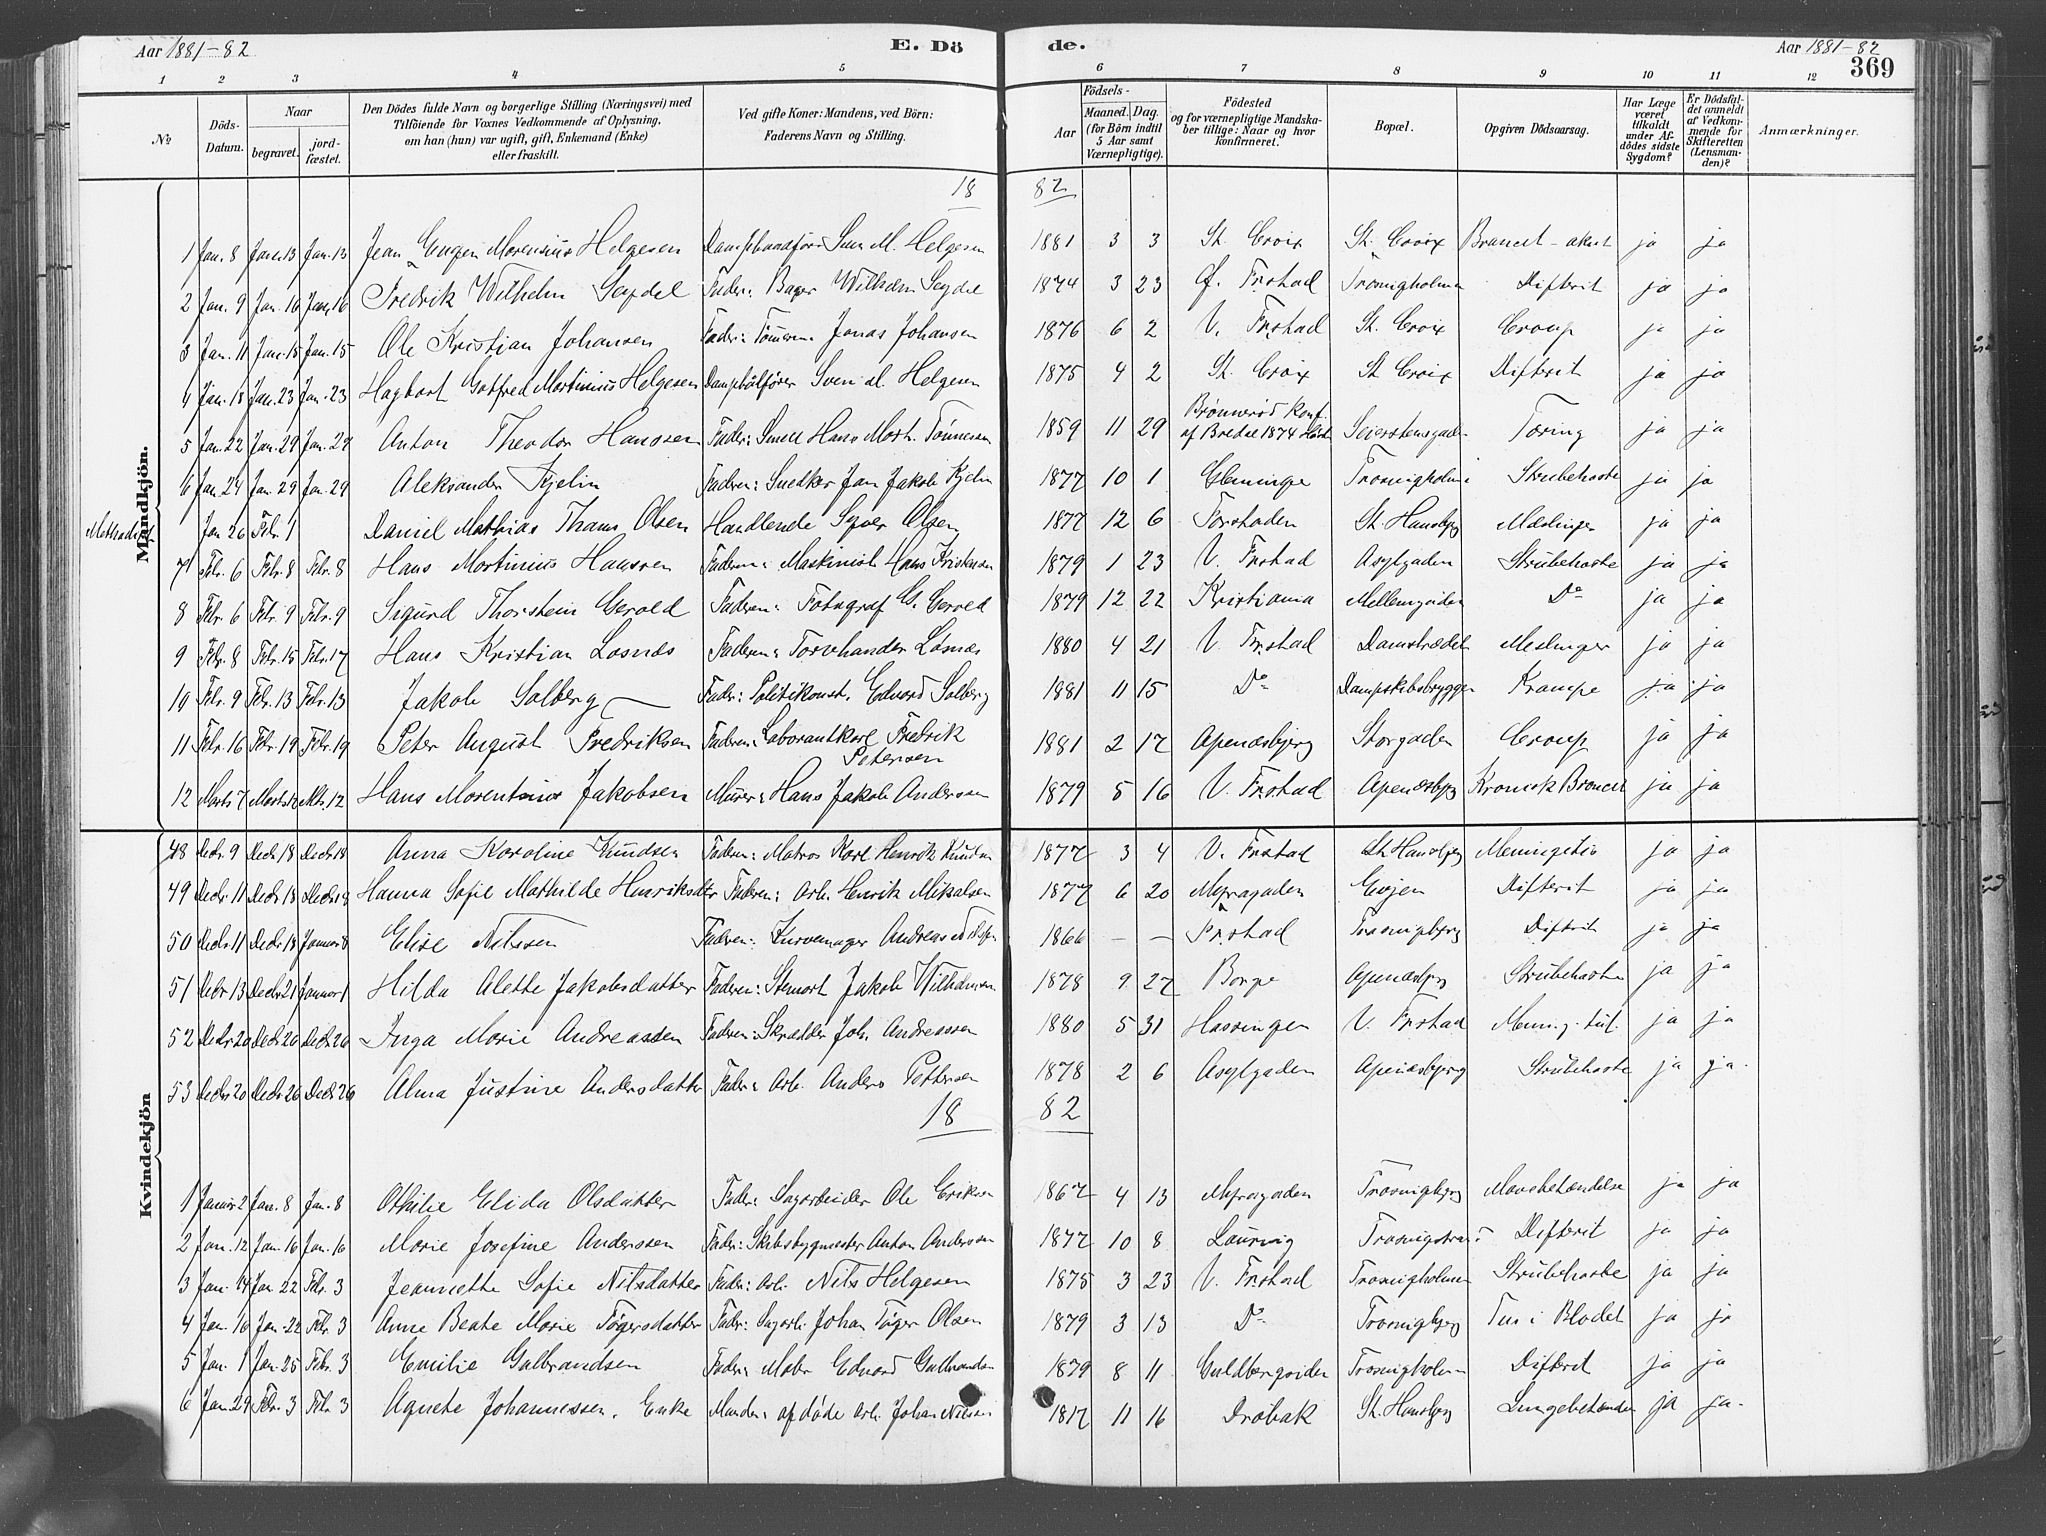 Aar 1881-82 E. Dö de. Aar 1881-82
369
1 2 3 4 5 6 7 8 9 10 11 12
No Döds-Datum. Naar begravet. jordfæstet. Den Dödes fulde Navn og borgerlige Stilling (Næringsvei) med Tilföiende for Voxnes Vedkommende af Oplysning, om han (hun) var ugift, gift, Enkemand (Enke) eller fraskilt. Ved gifte Koner: Mandens, ved Börn: Faderens Navn og Stilling. Födsels- Aar Maaned. Dag. (for Börn indtil 5 Aar samt Værnepligtige). Födested og for værnepligtige Mandskaber tillige: Naar og hvor konfirmeret. Bopæl. Opgiven Dödsaarsag. Har Læge været tilkaldt under Afdödes sidste Sygdom? Er Dödsfaldet anmeldt af Vedkommende for Skifteretten (Lensmanden)? Anmærkninger.
Mandkjön.
18 82
1 Jan. 8 Jan. 13 Jan. 13 Jean Eugen Morensius Helgesen Sven M. Helgesen 1881 3 3 St. Croix St. Croix ja ja
2 Jan. 9 Jan. 16 Jan. 16 Fredrik Wilhelm Seydel Fader: Bager Wilhelm Seydel 1874 3 23 Frstad Trosvigholmen Difterit ja ja
3 Jan. 11 Jan. 15 Jan. 15 Ole Kristian Johansen Fader: Tömerm. Jonas Johansen 1876 6 2 V. Frstad St. Croix Croup ja ja
4 Jan. 18 Jan. 23 Jan. 23 Hagbart Gotfred Martinius Helgesen Sven M. Helgesen 1875 4 2 St. Croix St Croix Difterit ja ja
5 Jan. 22 Jan. 29 Jan. 29 Anton Theodor Hanssen Fader: Smed Hans Mart. Tönnesen 1859 11 29 Konf. af Bredal 1874 Tæring ja ja
6 Jan. 24 Jan. 29 Jan. 29 Aleksander Kjelin Faderen: Snedker Jan Jakob Kjelin 1877 10 1 Glemminge Trosvigholm Strubehoste ja ja
Methodist Jan 26 Febr. 1 Daniel Mathias Olsen Handlende Syver Olsen 1877 12 6 Forstaden St. Hansbjg Mæslinger ja ja
7 Febr. 6 Febr. 8 Febr. 8 Hans Martinius Hanssen Faderen: Maskinist Hans Kristensen 1879 1 23 V. Frstad Asylgaden Strubehoste ja ja
8 Febr. 6 Febr. 9 Febr. 9 Sigurd Thorstein Gerold Faderen: Fotograf G. Gerold 1879 12 22 Kristiania Mellemgaden Do ja ja
9 Febr. 8 Febr. 15 Febr. 17 Hans Kristian Løsnæs Faderen: Torvhandler Løsnæs 1880 4 21 V. Frstad Damstrædet Meslinger ja ja
10 Febr. 9 Febr. 13 Febr. 13 Jakob Solberg Fader: Politikonst. Edvard Solberg 1881 11 15 Do Dampskibsbryggen Krampe ja ja
11 Febr. 16 Febr. 19 Febr. 19 Peter August Fredriksen Faderen: Laborantkarl Fredrik Petersen 1881 2 17 Apenæsbjerg Storgaden Croup ja ja
12 Marts 7 Marts 12 Mts. 12 Hans Morentinus Jakobsen Murer: Hans Jakob Anderssen 1879 5 16 V. Frstad Apenæsbjg Kronisk ja ja
Kvindekjön
48 Decbr. 9 Decbr 18 Decbr 18 Anna Karoline Knudsen Faderen: Matros Karl Henrik Knudsen 1877 3 4 V. Frstad St. Hansbjg Meningitis ja ja
49 Decbr. 11 Decbr 18 Decbr 18 Hanna Sofie Mathilde Henriksdtr Faderen: Arb. Henrik Mikalsen 1877 6 20 Myragaden Evjen Difterit ja ja
50 Decbr. 11 Decbr 18 Januar 8 Elise Nilssen Faderen: Kurvemager Andreas 1866 — — Frstad Trosvigbjerg Difterit ja ja
51 Decbr. 13 Decbr. 21 Januar 1 Hilda Alette Jakobsdatter Faderen: Stemart Jakob Wilhelmsen 1878 9 27 Borge Apenæsbjg Strubehoste ja ja
52 Decbr 20 Decbr 26 Decbr 26 Inga Marie Andreassen Faderen: Skrædder Joh. Andreassen 1880 5 31 Hassingen V. Frstad Mening. tub. ja ja
53 Decbr 20 Decbr 26 Decbr 26 Alma Justine Andersdatter Fader: Arb. Anders Pettersen 1878 2 6 Asylgaden Apenæsbjerg Strubehoste ja ja.
18 82
1 Januar 2 Jan. 8 Jan. 8 Othilie Elida Olsdatter Fader: Sagarbeider Ole Eriksen 1867 4 13 Myragaden Trosvigbjerg Mavebetændelse ja ja
2 Jan. 12 Jan. 16 Jan. 16 Marie Josefine Anderssen Fader: Skibsbygmester Anton Anderssen 1877 10 8 Laurvig Difterit ja ja
3 Jan. 14 Jan. 22 Febr. 3 Jeannette Sofie Nilsdatter Fader: Arb. Nils Helgesen 1875 3 23 V. Frstad Trosvigholmen Strubehoste ja ja
4 Jan. 16 Jan. 22 Febr. 3 Anne Beate Marie Tögersdatter Fader: Sagarb. Johan Töger Olsen 1879 3 13 Do Trosvigbjerg i Blodet ja ja
5 Jan. 1 Jan. 25 Febr. 3 Emilie Gulbrandsen Fader: Edvard Gulbrandsen 1879 8 11 Trosvigholmen Difterit ja ja
6 Jan. 29 Febr. 3 Febr. 3 Agnete Johannessen. Enke Manden: afdöde Arb. Johan Nielsen 1817 11 16 Dröbak St. Hansbjg Lungebetændelse ja ja.